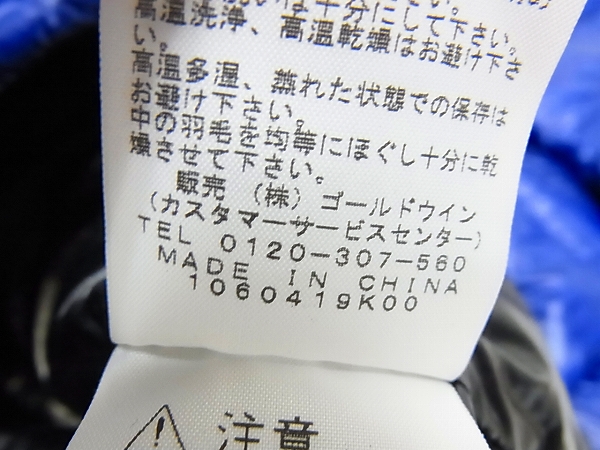 は十分にして下さい。
高温洗浄、高温乾燥はお避け下さ
い。
高温多湿、蒸れた状態での保存は
お避け下さい。
中の羽毛を均等にほぐし十分に乾
燥させて下さい。
販売 (株) ゴールドウイン
(カスタマーサービスセンター)
TEL 0120-307-560
MADE IN CHINA
1060419K00
注意